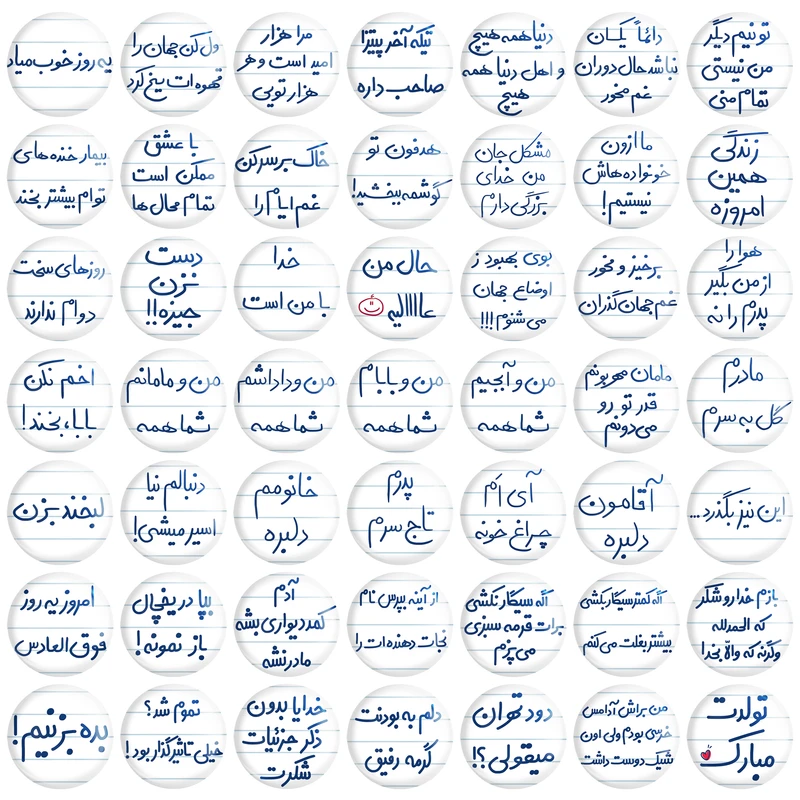 تو نیم دیگر
من نیستی
تمام منی
دائماً یکسان
نباشد حال دوران
غم مخور
دنیا همه هیچ
و اهل دنیا همه
هیچ
تیکه آخر پیتزا
صاحب داره
مرا هزار
امید است و هر
هزار تویی
ول کن جهان را
قهوه ات یخ کرد
یه روز خوب میاد
زندگی
همین
امروزه
ما ازون
خونواده هاش
نیستیم!
مشکل جان
من خدای
بزرگی دارم
هدفون تو
گوشمه ببخشید!
خاک بر سر کن
غم ایام را
با عشق
ممکن است
تمام محال ها
بیمار خنده های
توام بیشتر بخند
هوا را
از من بگیر
پدرم را نه
برخیز و مخور
غم جهان گذران
بوی بهبود ز
اوضاع جهان
می شنوم!!!
حال من
عااااالیه
خدا
با من است
دست
نزن
جیزه!!
روزهای سخت
دوام ندارند
مادرم
گل به سرم
مامان مهربونم
قدر تو رو
می دونم
من و آبجیم
شما همه
من و بابام
شما همه
من و داداشم
شما همه
من و مامانم
شما همه
اخم نکن
بابا، بخند!
این نیز بگذرد...
آقامون
دلبره
آی اَم
چراغ خونه
پدرم
تاج سرم
خانومم
دلبره
دنبالم نیا
اسیر میشی!
لبخند بزن
بازم خدا رو شکر
که الحمدلله
وگرنه که والا بخدا
اگه کمتر سیگار بکشی
بیشتر بغلت می کنم
اگه سیگار نکشی
برات قرمه سبزی
می پزم
از آینه بپرس نام
نجات دهنده ات را
آدم
کمد دیواری بشه
مادر نشه
بپا در یخچال
باز نمونه!
امروز یه روز
فوق العادس
تولدت
مبارک
من براش آدامس
خرسی بودم ولی اون
شیک دوست داشت
دود تهران
میقولی؟!
دلم به بودنت
گرمه رفیق
خدایا بدون
ذکر جزئیات
شکرت
تموم شد؟
خیلی تاثیرگذار بود!
بده بزنیم!